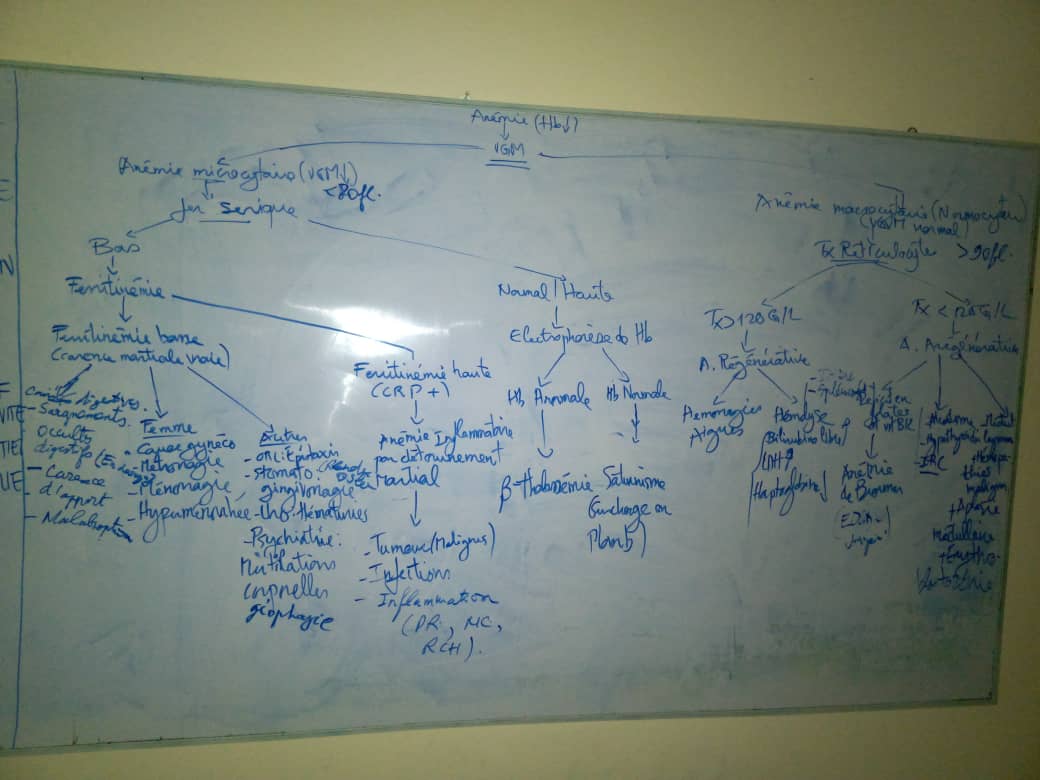 Anémie (Hb↓)
VGM
Anémie microcytaire (VGM↓)
<80fl.
Fer Serique
Bas
Ferritinémie
Ferritinémie basse
(carence martiale vraie)
Causes digestives.
- Saignements
Occults
digestifs
- Carence
d'apport
- Malabsorption
Femme
- Cause gynéco
- Métrorragie
- Ménorragie
- Hyperménorrhée
Autres
- ORL: Epistaxis
- Stomato.
gingivorragie
- Uro: Hématuries
- Psychiatrie:
Mutilations
corporelles
géophagie
Ferritinémie haute
(CRP+)
Anémie Inflammatoire
par détournement
Martial
- Tumeur (Malignes)
- Infections
- Inflammation
(PR, MC,
RCH).
Normal / Haute
Electrophorèse de Hb
Hb Anormale
Hb Normale
β-thalassémie
Saturnisme
Surcharge en
Plomb)
Anémie macrocytaire (Normocytaire)
(VGM normal)
Tx Reticulocytes >90fl.
Tx>120G/L
A. Régénérative
Hemorragies
Aigues
Hémolyse
Bilirubine libre
LDH
Haptoglobine
Tx < 120G/L
A. Arégénérative
Anémie
de Biermer
- Hypothyroïdie
- IRC
+ Aplasie
médullaire
+ Erythro-
blastopénie